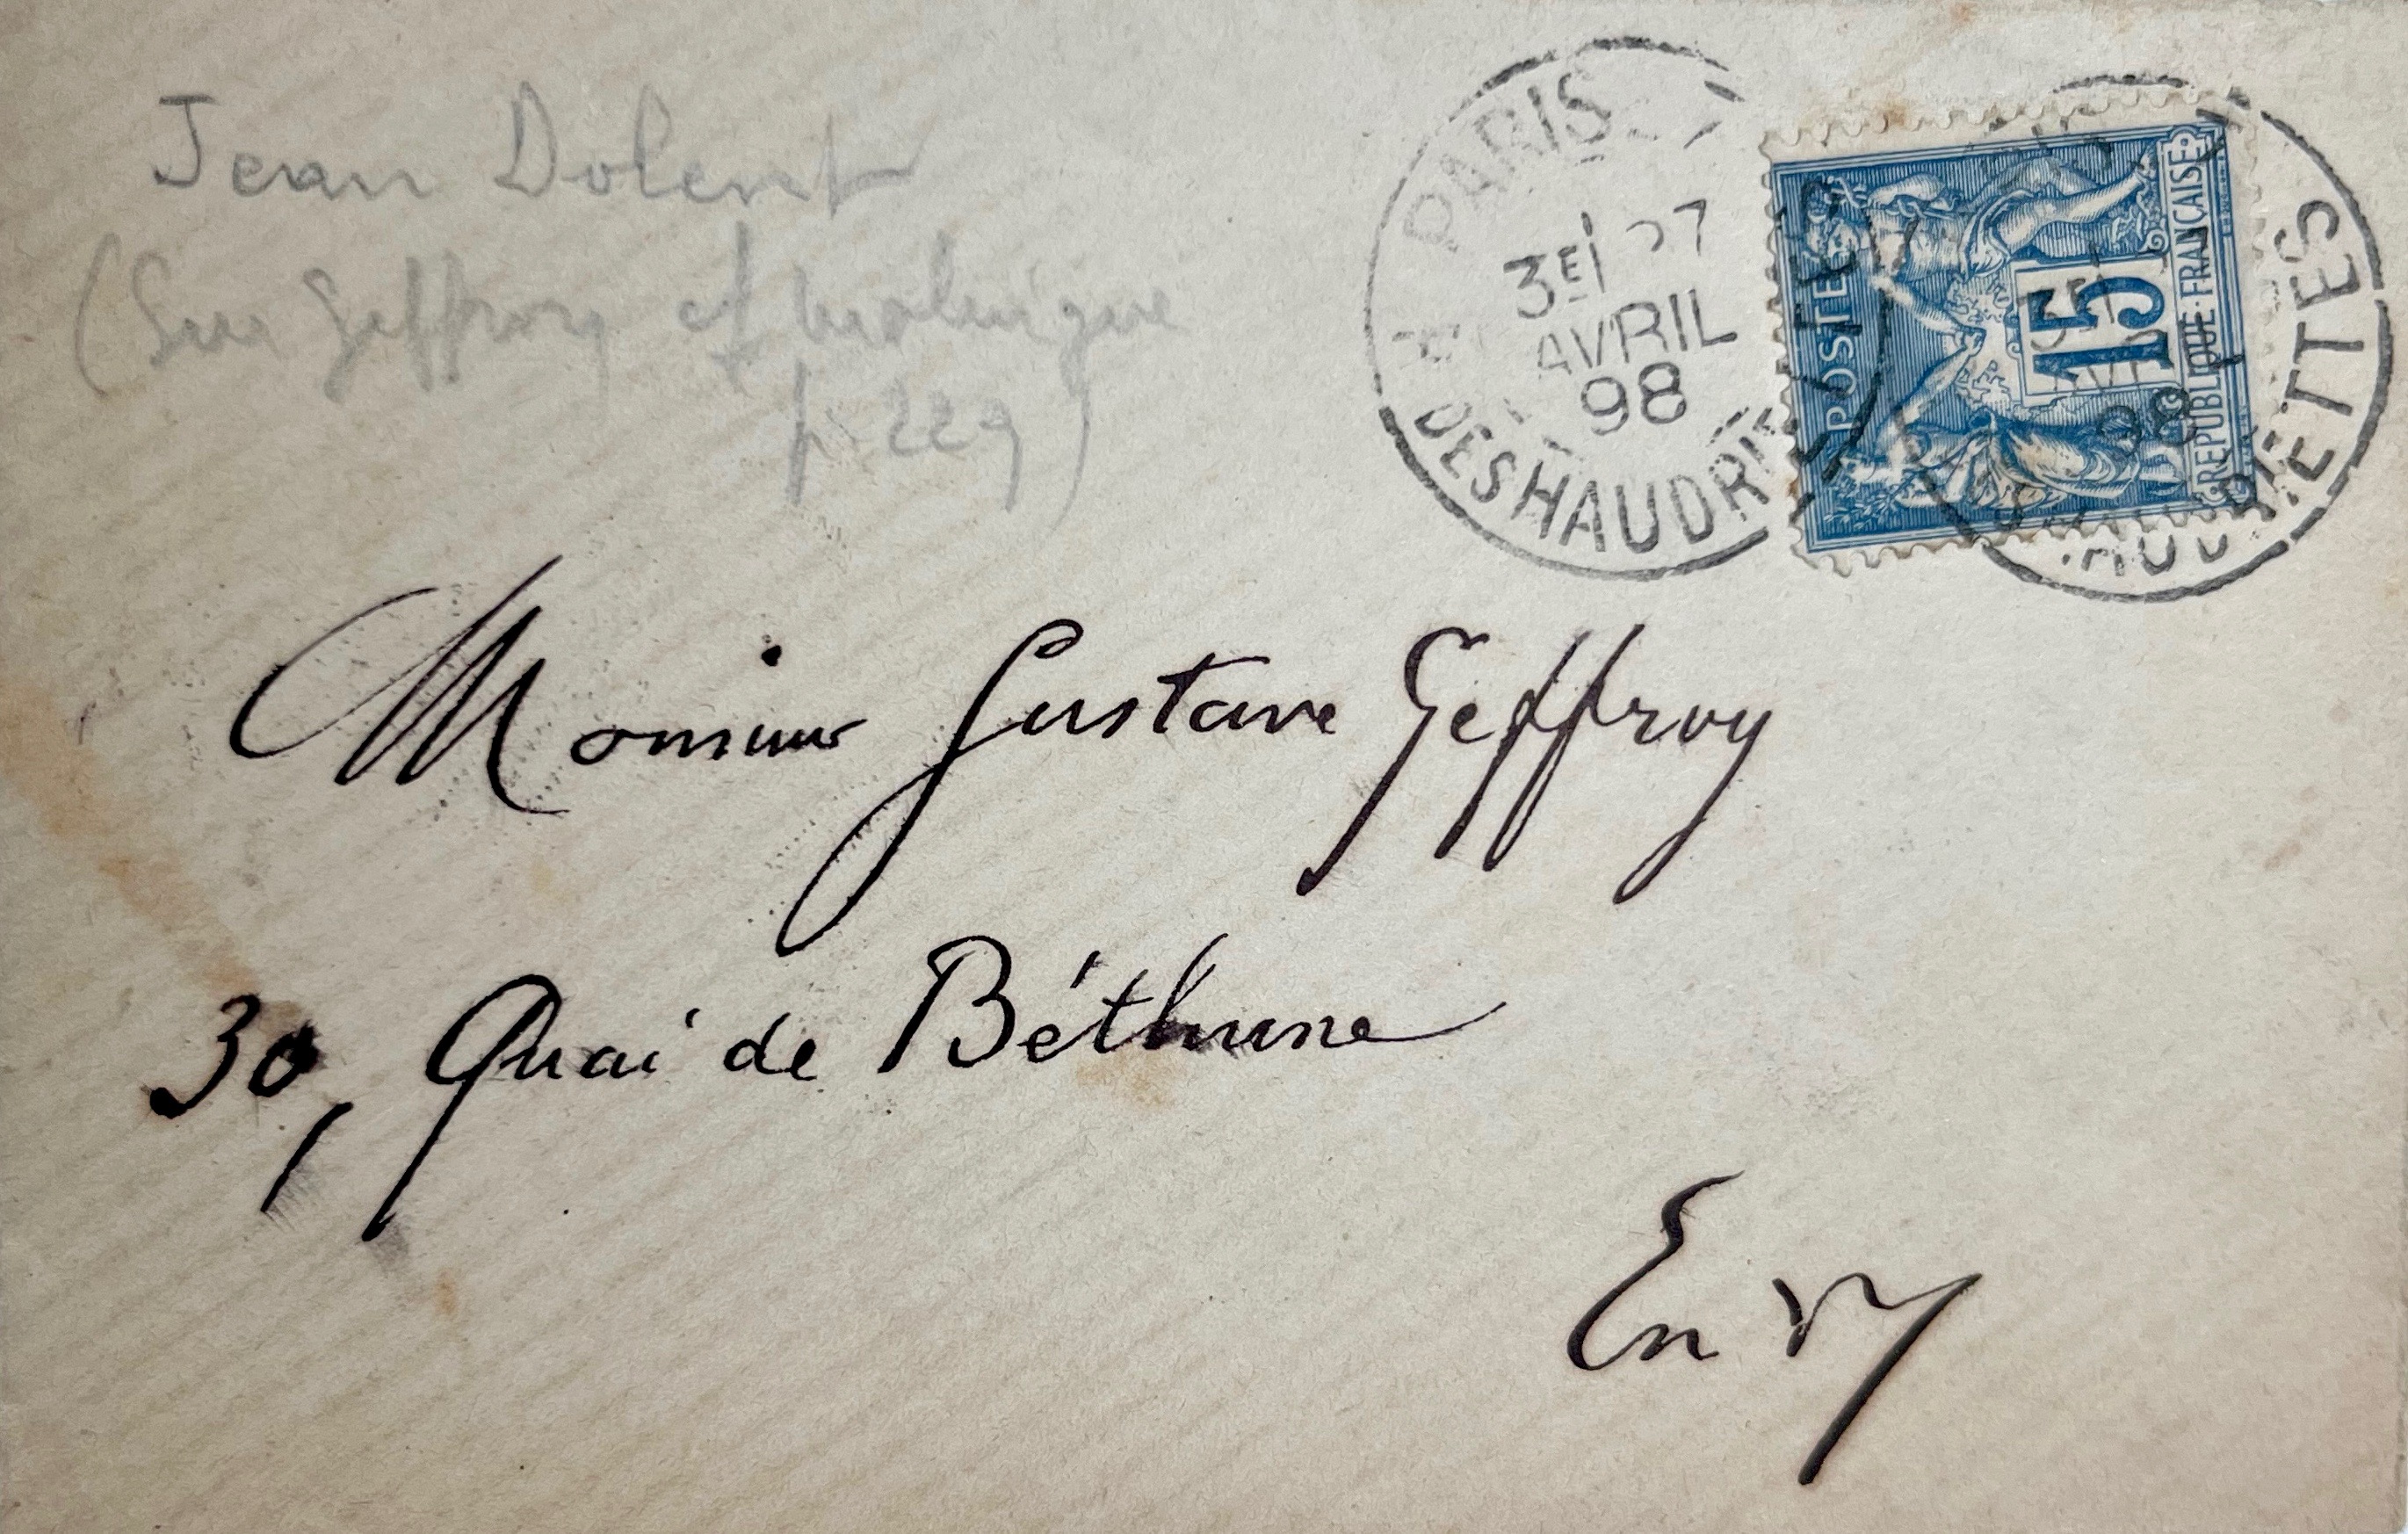 Jean Dolent
(Sur Geffroy cf
p. 229)
PARIS
3E 27
AVRIL
98
DES HAUDRIETTES
POSTES
15
REPUBLIQUE FRANÇAISE
98
HAUDRIETTES
Monsieur Gustave Geffroy
30, Quai de Béthune
En V